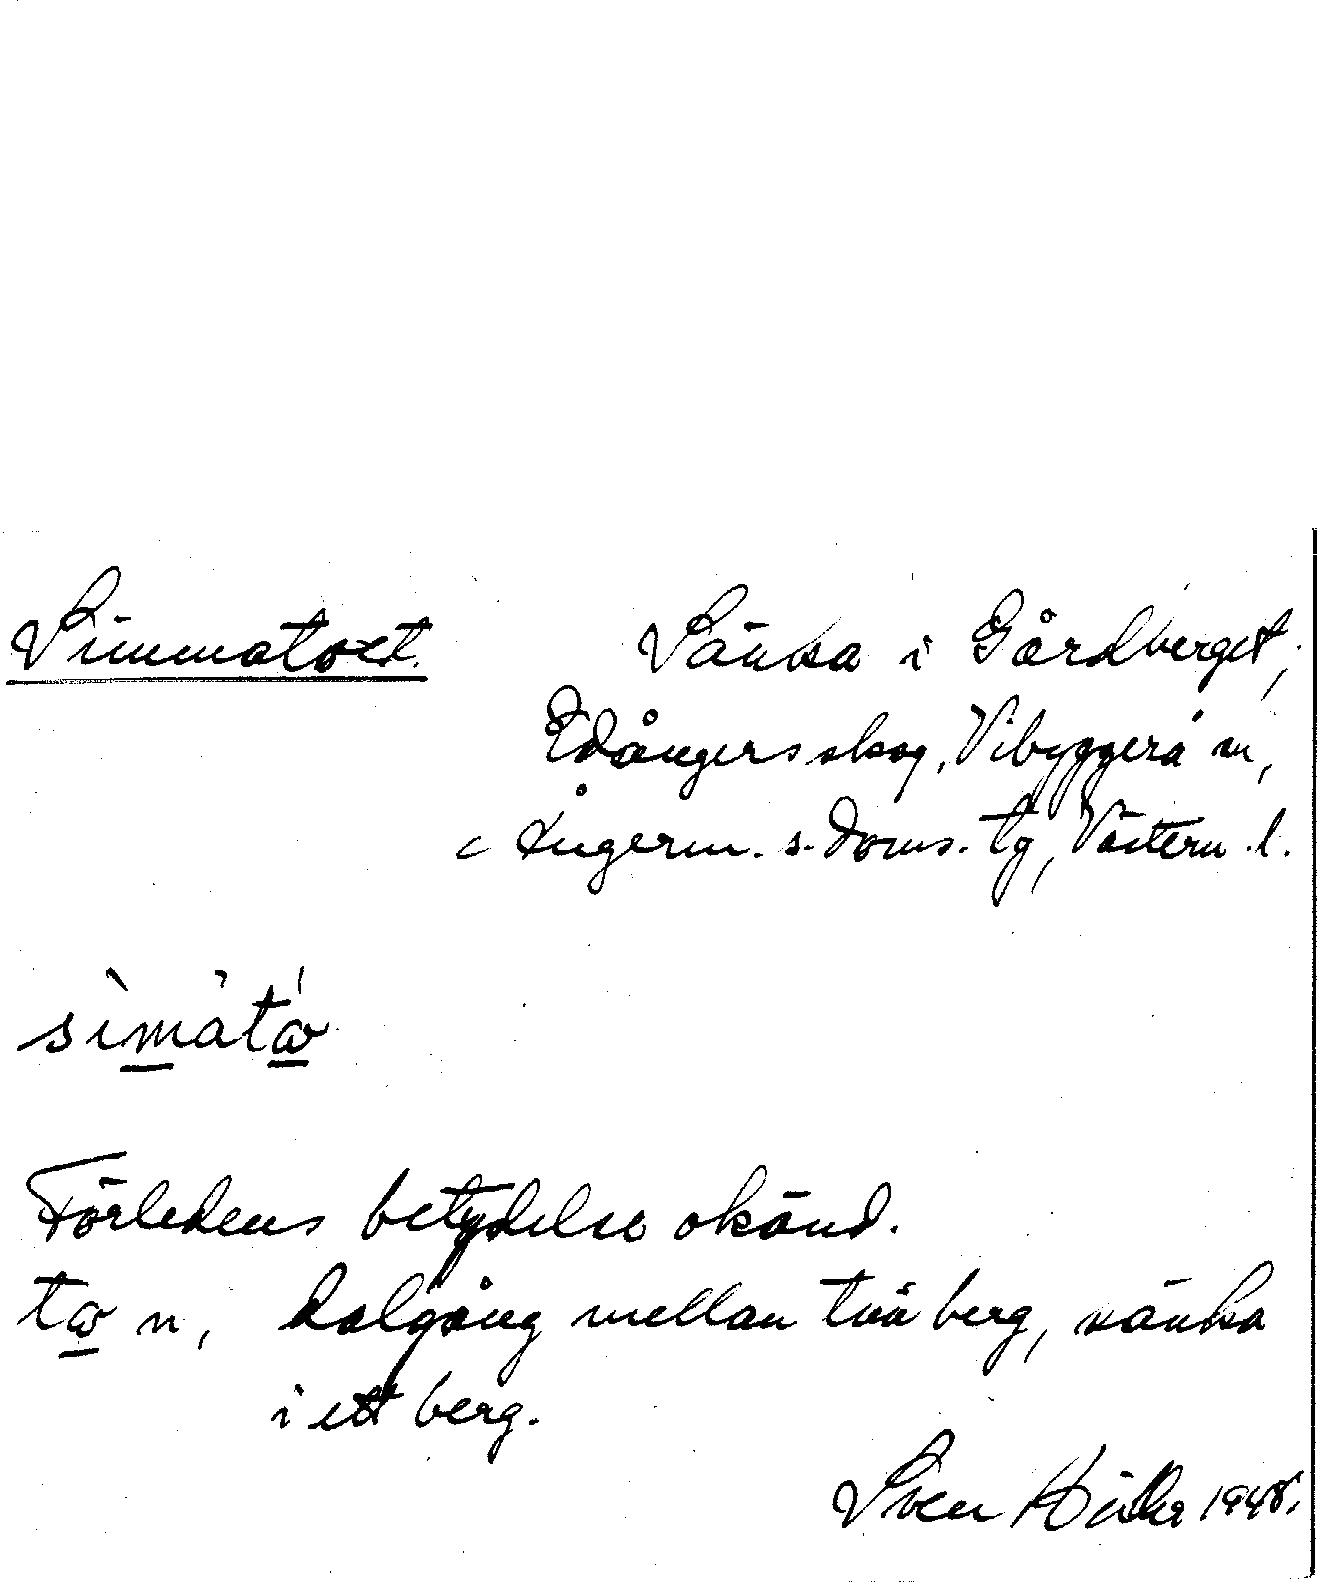 Simmatoet. Sänka i Gårdberget,
Edångers skog, Vibyggerå sn,
Ångerm. s. doms. tg, Västern. l.
Förledens betydelse okänd.
n, dalgång mellan två berg, sänka
i ett berg.
Sven 1948.